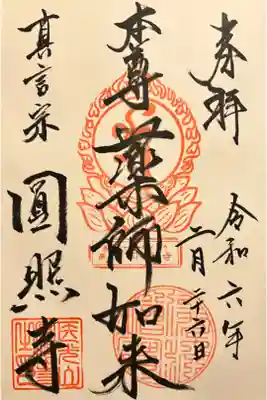 奉拝
令和六年
二月二十六日
本尊 薬師如来
真言宗
圓照寺